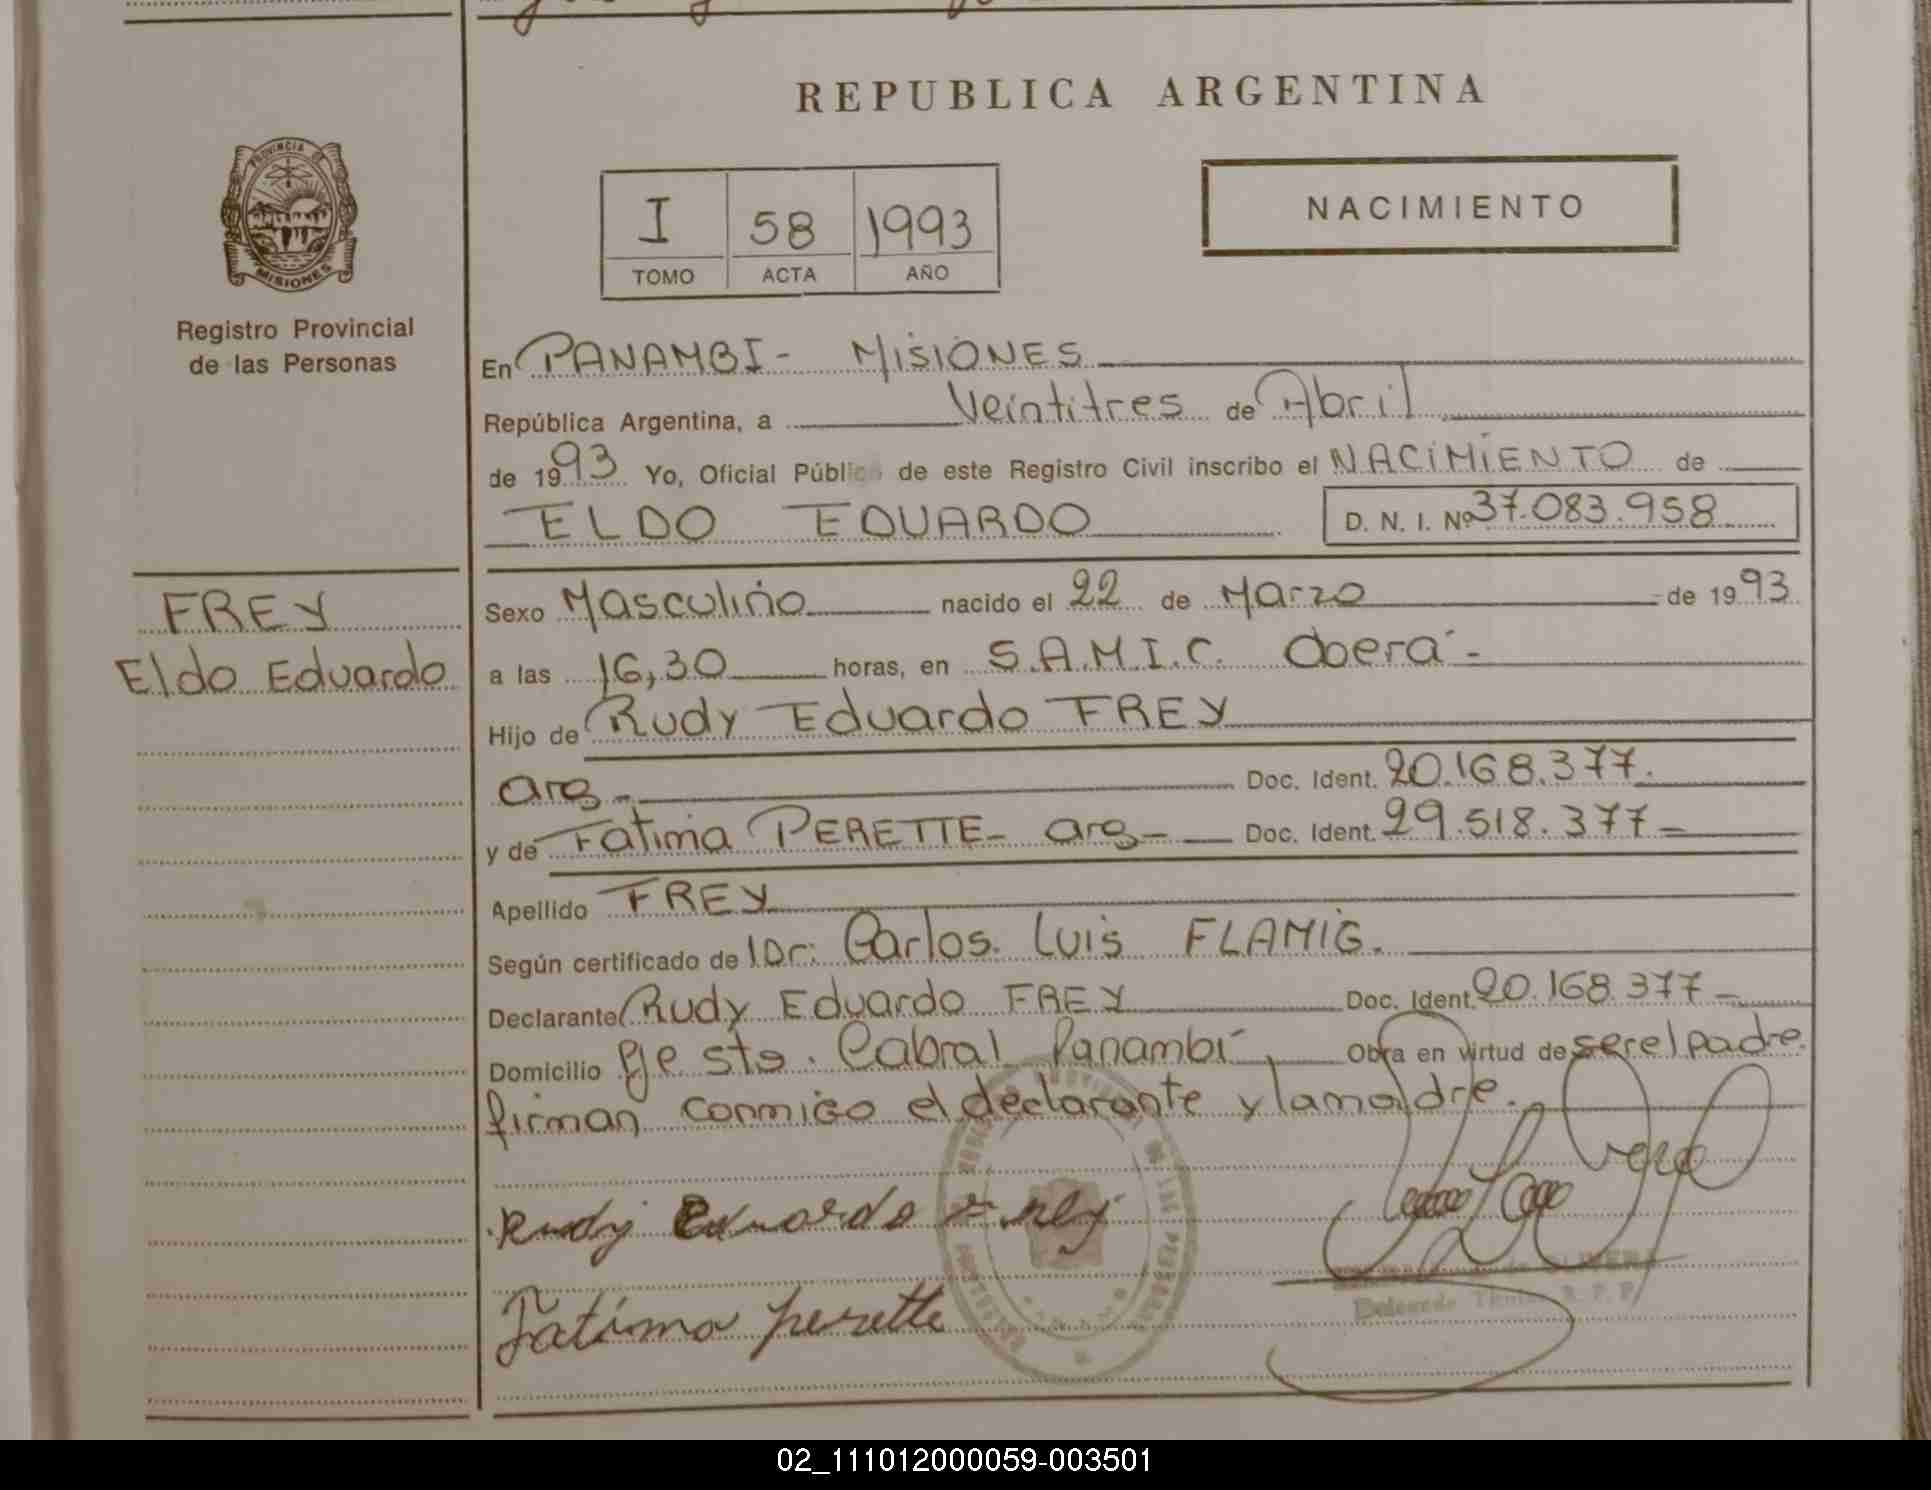 REPUBLICA ARGENTINA
PROVINCIA DE
MISIONES
Registro Provincial
de las Personas
I 58 1993
TOMO ACTA AÑO
NACIMIENTO
En PANAMBI- MISIONES
República Argentina, a Veintitres de Abril
de 1993 Yo, Oficial Público de este Registro Civil inscribo el NACIMIENTO de
ELDO EDUARDO D. N. I. Nº 37.083.958
FREY
Eldo Eduardo
Sexo Masculino nacido el 22 de Marzo de 1993
a las 16,30 horas, en S.A.M.I.C. Oberá-
Hijo de Rudy Eduardo FREY
arg- Doc. Ident. 20.168.377.
y de Fatima PERETTE- arg- Doc. Ident. 29.518.377-
Apellido FREY
Según certificado de Dr: Carlos Luis FLAMIG.
Declarante Rudy Eduardo FREY Doc. Ident. 20.168.377-
Domicilio Pje sto. Cabral Panambí, Obra en virtud de ser el padre
firman conmigo el declarante y la madre.
Rudy Eduardo Frey
Fatima perette
02_111012000059-003501